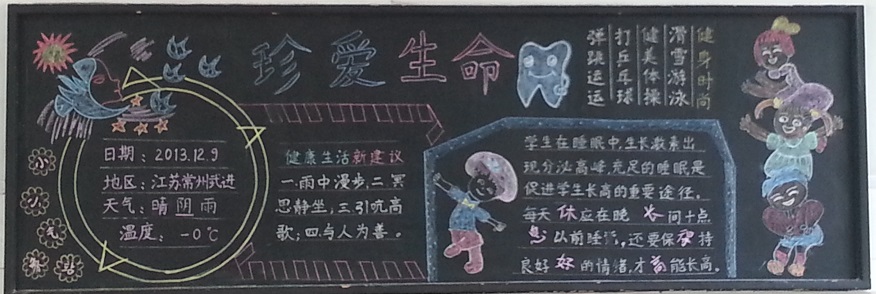 珍爱生命
小小气象站
日期：2013.12.9
地区：江苏常州武进
天气：晴 阴 雨
温度：-0℃
健康生活新建议
一.雨中漫步,二冥
思静坐,三引吭高
歌;四与人为善。
学生在睡眠中,生长激素出
现分泌高峰,充足的睡眠是
促进学生长高的重要途径。
每天休应在晚 间十点
息以前睡,还要保持
良好好的情绪,才能长高。
健身时尚
滑雪游泳
健美体操
打乒乓球
弹跳运运